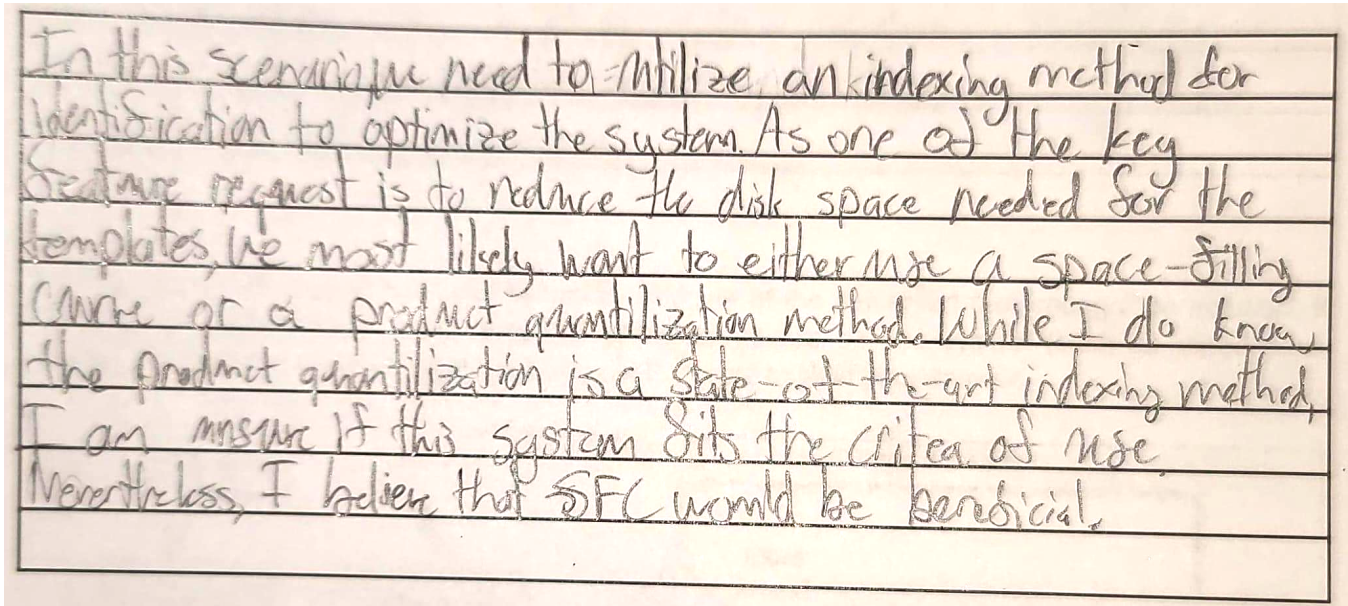 In this scenario, we need to utilize an indexing method for
identification to optimize the system. As one of the key
feature request is to reduce the disk space needed for the
templates, we most likely want to either use a space-filling
curve or a product quantilization method. While I do know,
the product quantilization is a state-of-the-art indexing method,
I am unsure if this system fits the critea of use.
Nevertheless, I believe that SFC would be beneficial.